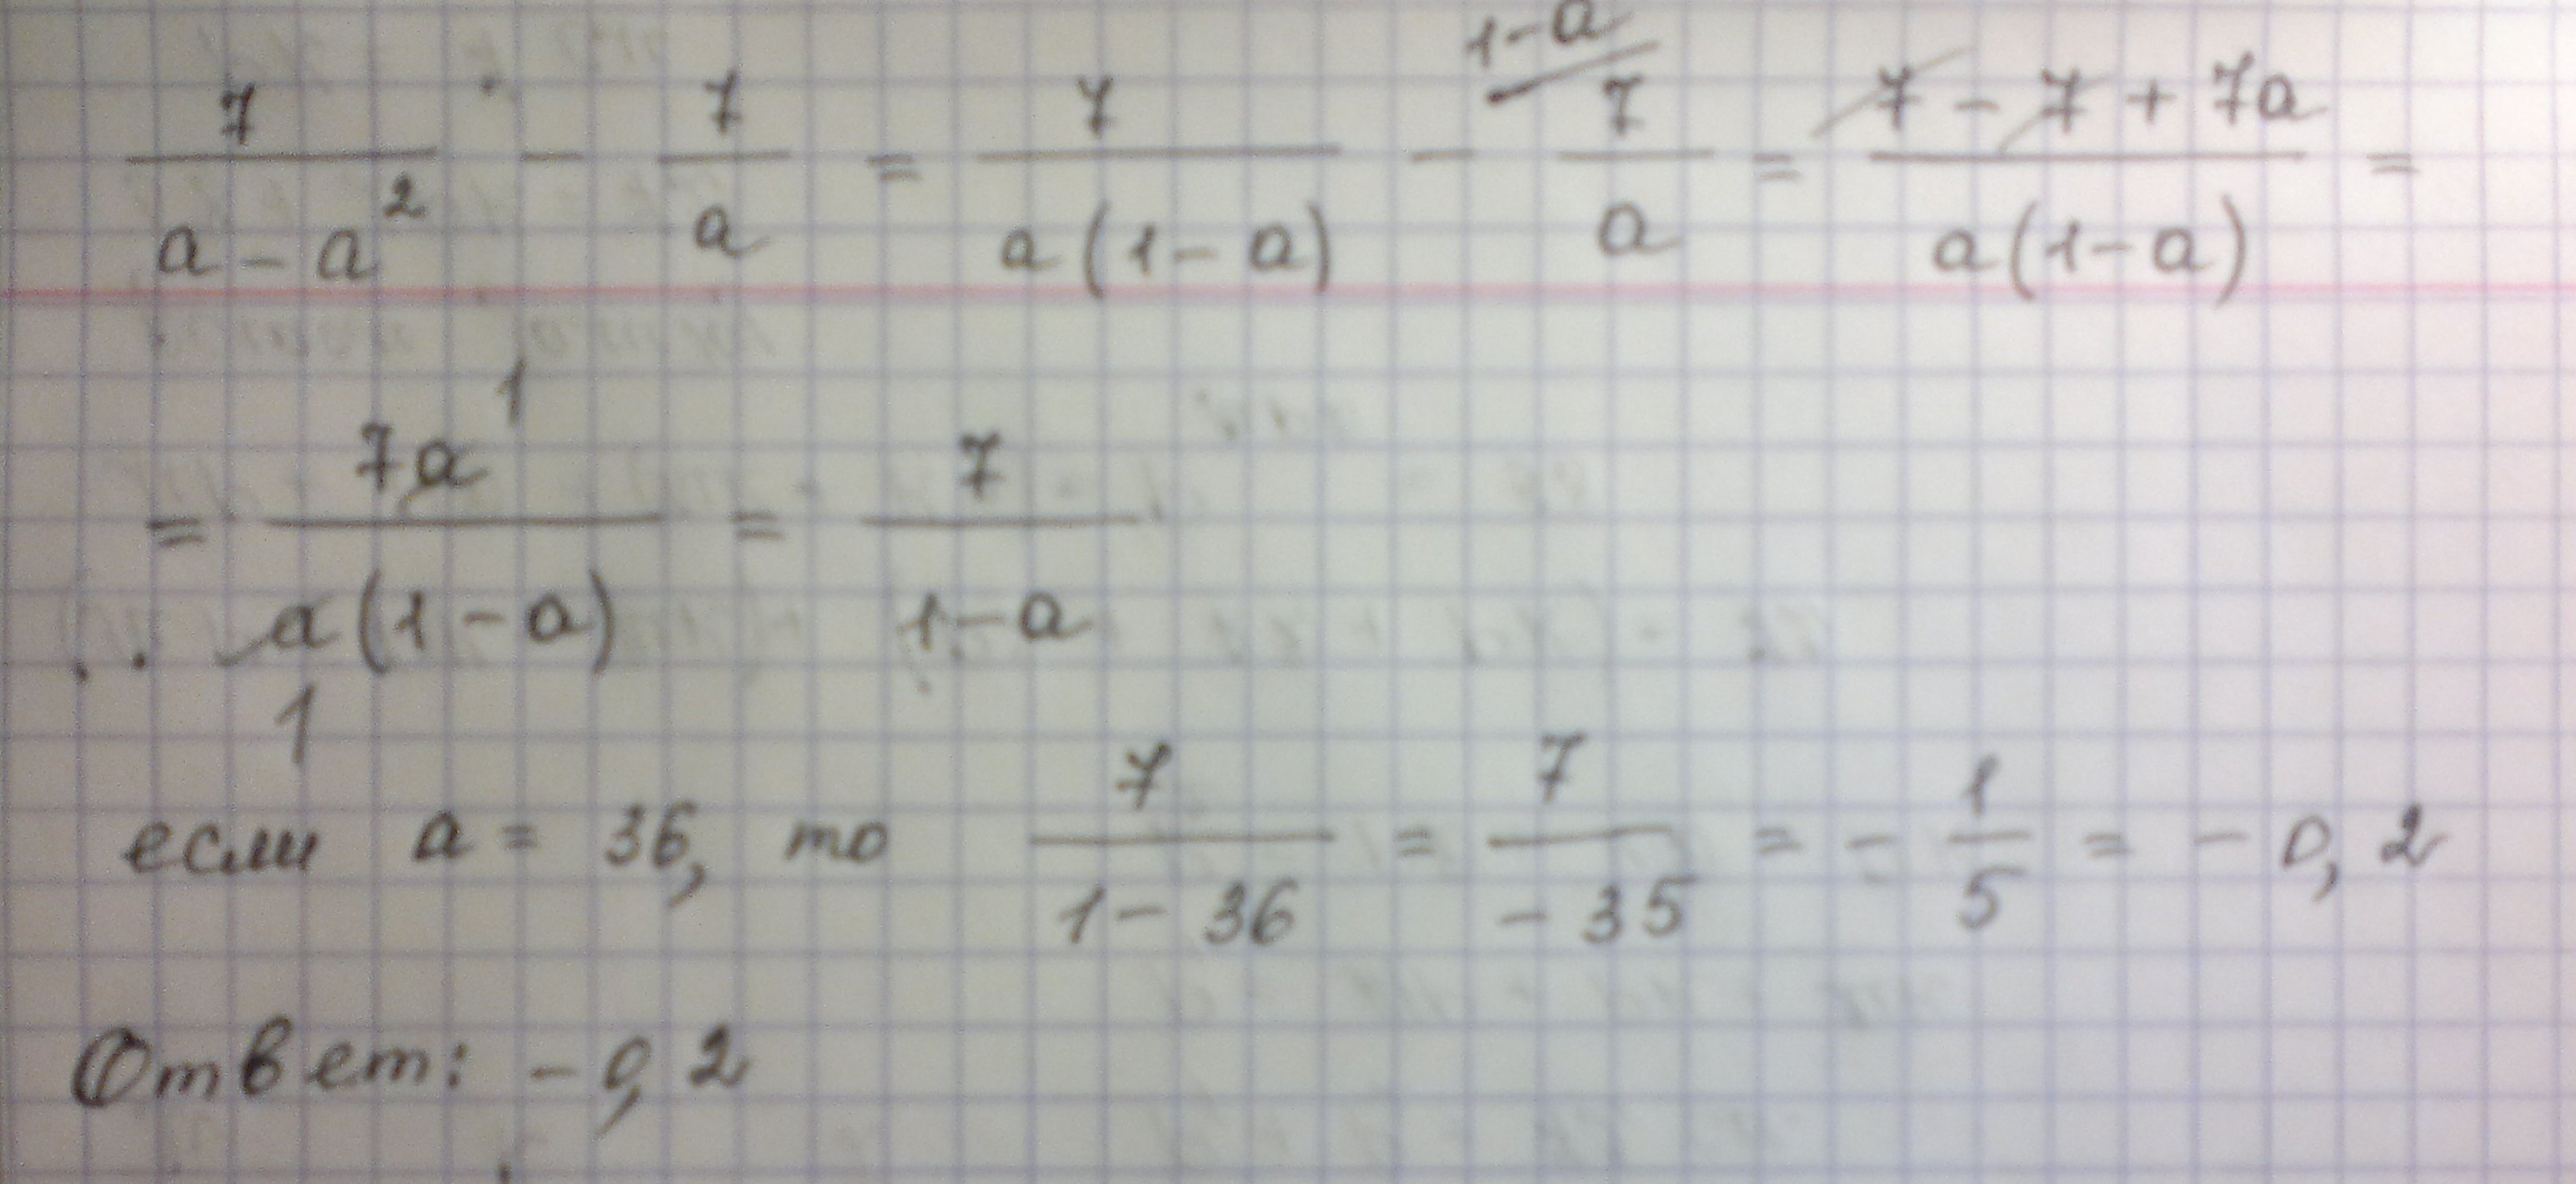 7/(a-a²) - 7/a = 7/(a(1-a)) - 7/a ^(1-a) = (7-7+7a)/(a(1-a)) =
= 7a/(a(1-a)) = 7/(1-a)
если a = 36, то 7/(1-36) = 7/(-35) = - 1/5 = - 0,2
Ответ: - 0,2